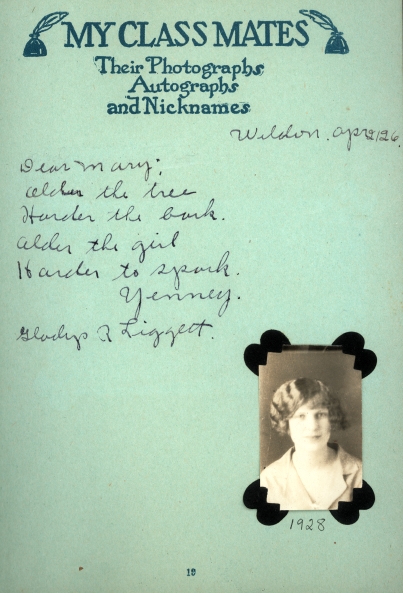 MY CLASS MATES
Their Photographs
Autographs
and Nicknames
Weldon. Apr 2/26.
Dear Mary;
Older the tree
Harder the bark.
Older the girl
Harder to spark.
Yenney.
Gladys R Liggett.
1928
18